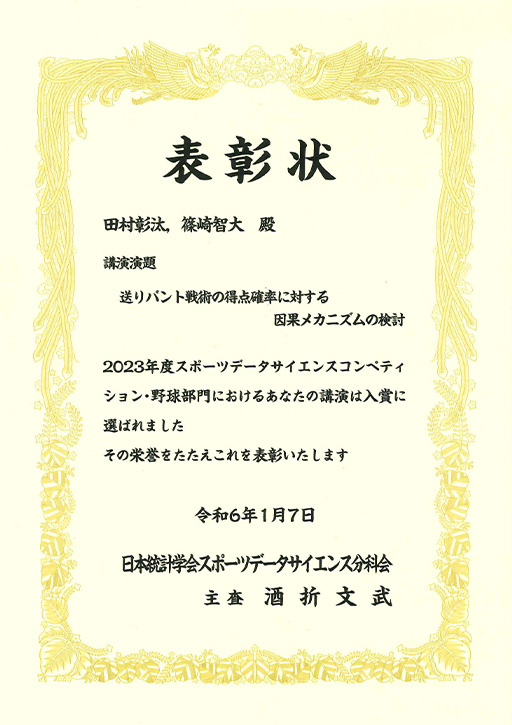 表彰状
田村彰汰，篠崎智大　殿
講演演題
送りバント戦術の得点確率に対する
因果メカニズムの検討
2023年度スポーツデータサイエンスコンペティ
ション・野球部門におけるあなたの講演は入賞に
選ばれました
その栄誉をたたえこれを表彰いたします
令和6年1月7日
日本統計学会スポーツデータサイエンス分科会
主査　酒折文武